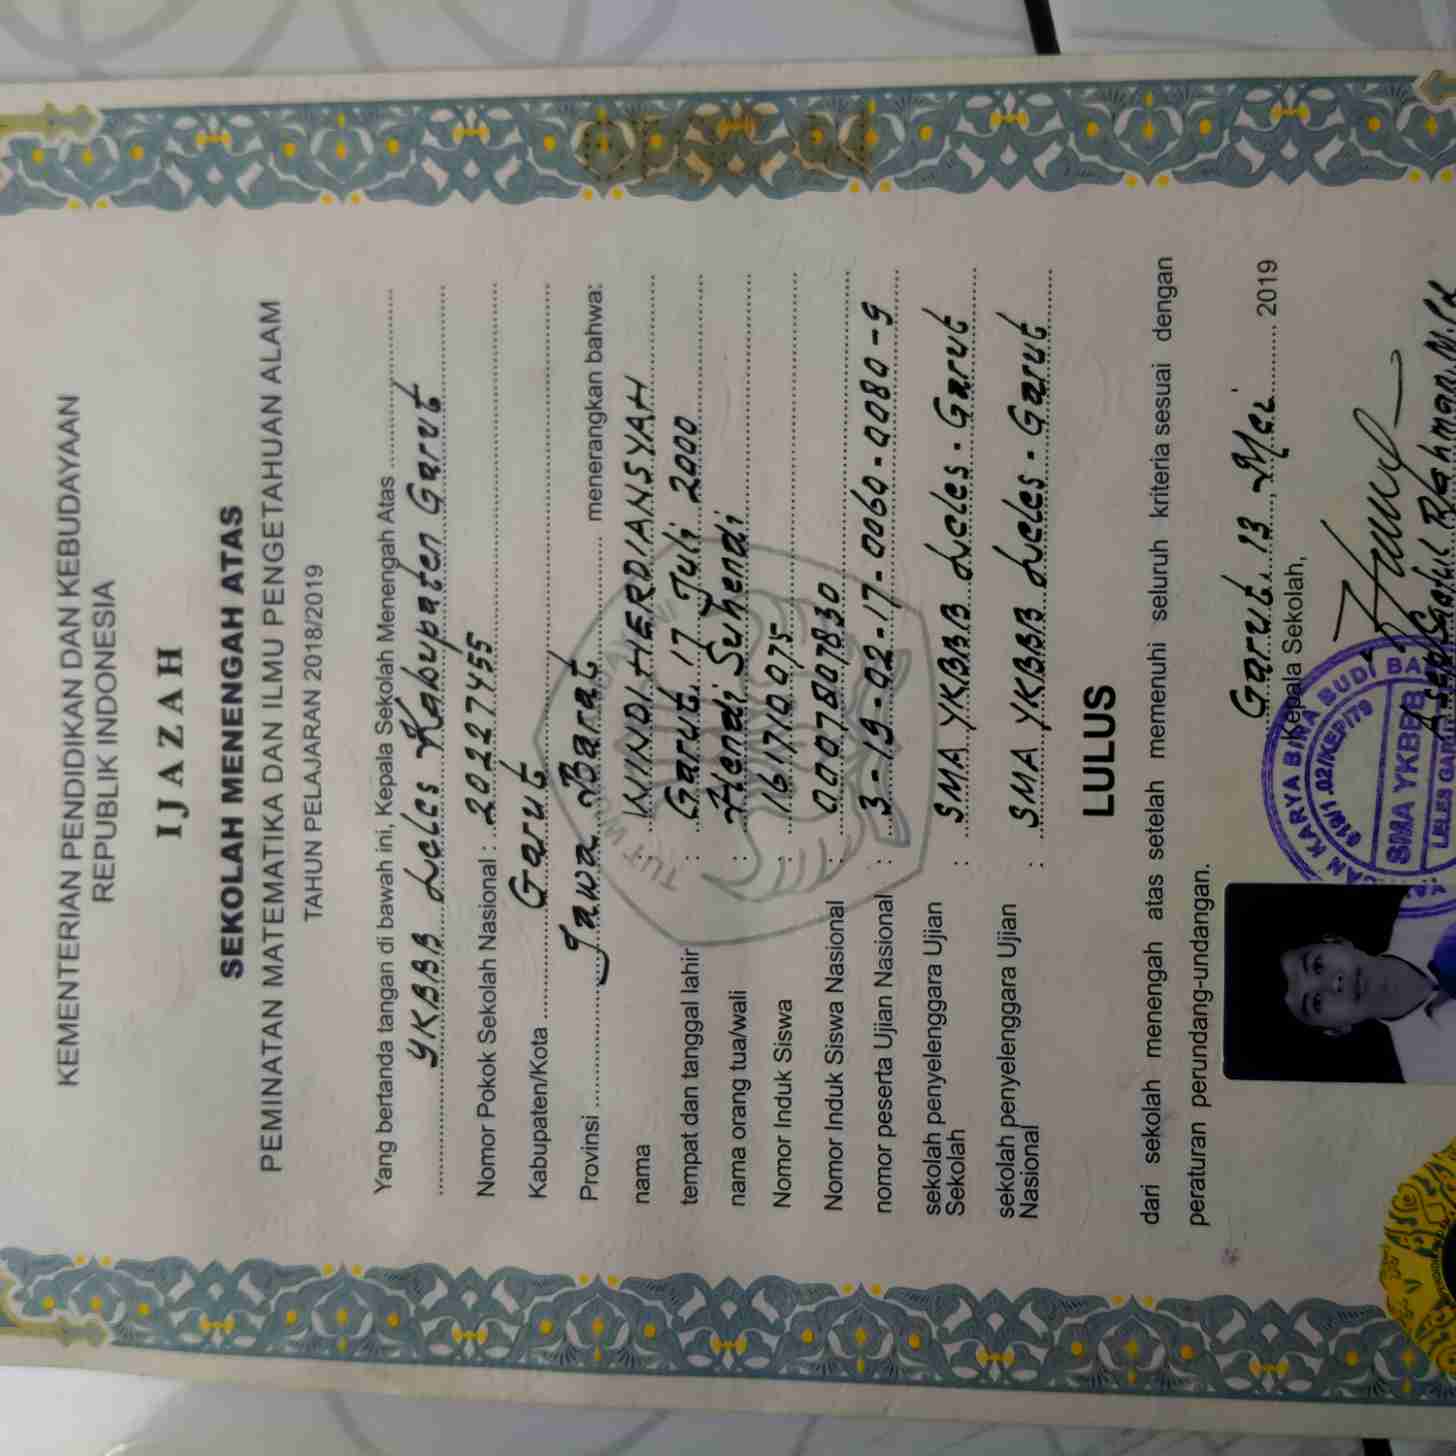 KEMENTERIAN PENDIDIKAN DAN KEBUDAYAAN
REPUBLIK INDONESIA
IJAZAH
SEKOLAH MENENGAH ATAS
PEMINATAN MATEMATIKA DAN ILMU PENGETAHUAN ALAM
TAHUN PELAJARAN 2018/2019
Yang bertanda tangan di bawah ini, Kepala Sekolah Menengah Atas
YKBBB Leles Kabupaten Garut
Nomor Pokok Sekolah Nasional : 20227455
Kabupaten/Kota Garut
Provinsi Jawa Barat menerangkan bahwa:
nama : WINDI HERDIANSYAH
tempat dan tanggal lahir : Garut, 17 Juli 2000
nama orang tua/wali : Hendi Suhendi
Nomor Induk Siswa : 161710075
Nomor Induk Siswa Nasional : 0007807830
nomor peserta Ujian Nasional : 3-19-02-17-0060-0080-9
sekolah penyelenggara Ujian : SMA YKBBB Leles - Garut
Sekolah
sekolah penyelenggara Ujian : SMA YKBBB Leles - Garut
Nasional
LULUS
dari sekolah menengah atas setelah memenuhi seluruh kriteria sesuai dengan
peraturan perundang-undangan.
Garut, 13 Mei 2019
Kepala Sekolah,
SMA YKBBB